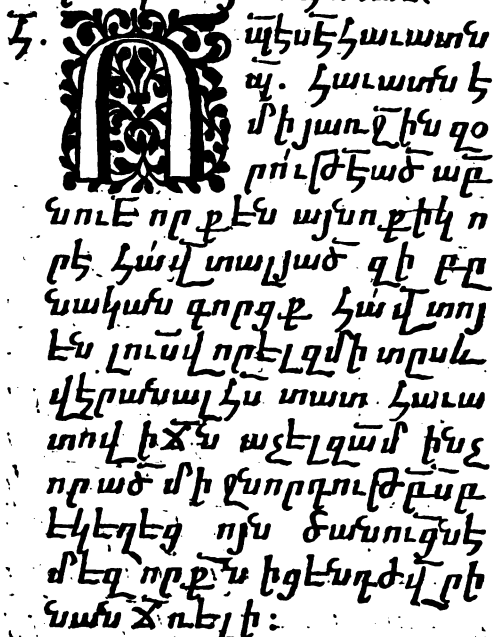 Հ. Ո պէսէՀաւատն
պ. Հաւատն է
մի յառջին զօ
րութէած աբ
նուէ որ քէն այնոքիկ ո
րէ Հավ տալյած զի բը
նական գորցք Հավ տոյ
են լուսվորելզմի տըսև
վերանալ Հն տատ Հաւա
տով իՃն աչելզամ ինչ
որ ած մի ջնորդութբնբ
եկեղեց ոյն ծանուցնէ
մեզ որք ն իցենդժվ րի
նան Ճռելի։